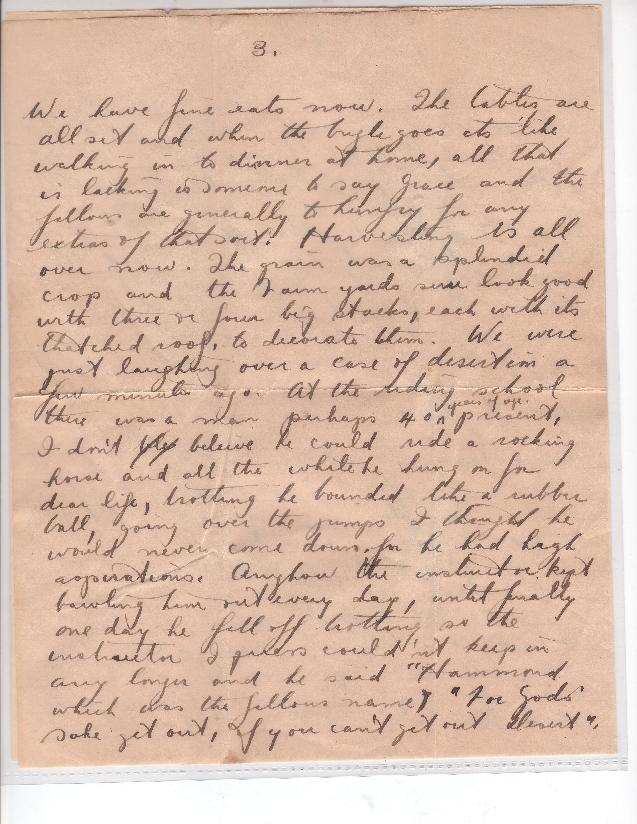 3.
We have fine eats now. The tables are
all sit and when the bugle goes its like
walking in to dinner at home, all that
is lacking is someone to say Grace and the
fellows are generally to hungry for any
extras of that sort. Harvesting is all
over now. The grain was a splendid
crop and the Farm yards sure look good
with three or four big stacks, each with its
thatched roof, to decorate them. We were
just laughing over a case of desertion a
few minutes ago. At the riding school
there was a man perhaps 40 years of age present,
I don't believe he could ride a rocking
horse and all the while he hung on for
dear life, trotting he bounded like a rubber
ball, going over the jumps I thought he
would never come down for he had high
asperations. Anyhow the instructor kept
bawling him out every day, until finally
one day he fell off trotting so the
instructor I guess could'nt keep in
any longer and he said "Hammond
which was the fellows name) "For Gods
sake get out, if you can't get out desert".